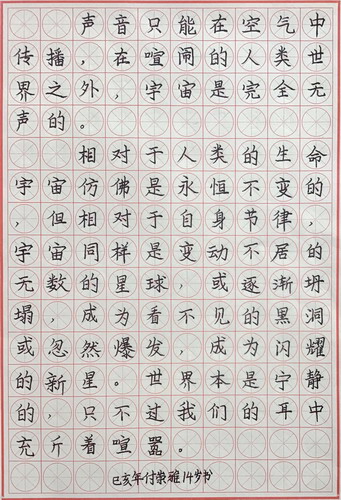 声音只能在空气中
传播，在喧闹的人类世
界之外，宇宙是完全无
声的。
相对于人类的生命
宇宙仿佛是永恒不变的
，但相对于自身节律，
宇宙同样是变动不居的
无数的星球，或逐渐坍
塌，成为看不见的黑洞
或忽然爆发，成为闪耀
的新星。世界本是宁静
的，只不过我们的耳中
充斥着喧嚣。
己亥年付崇雅14岁书